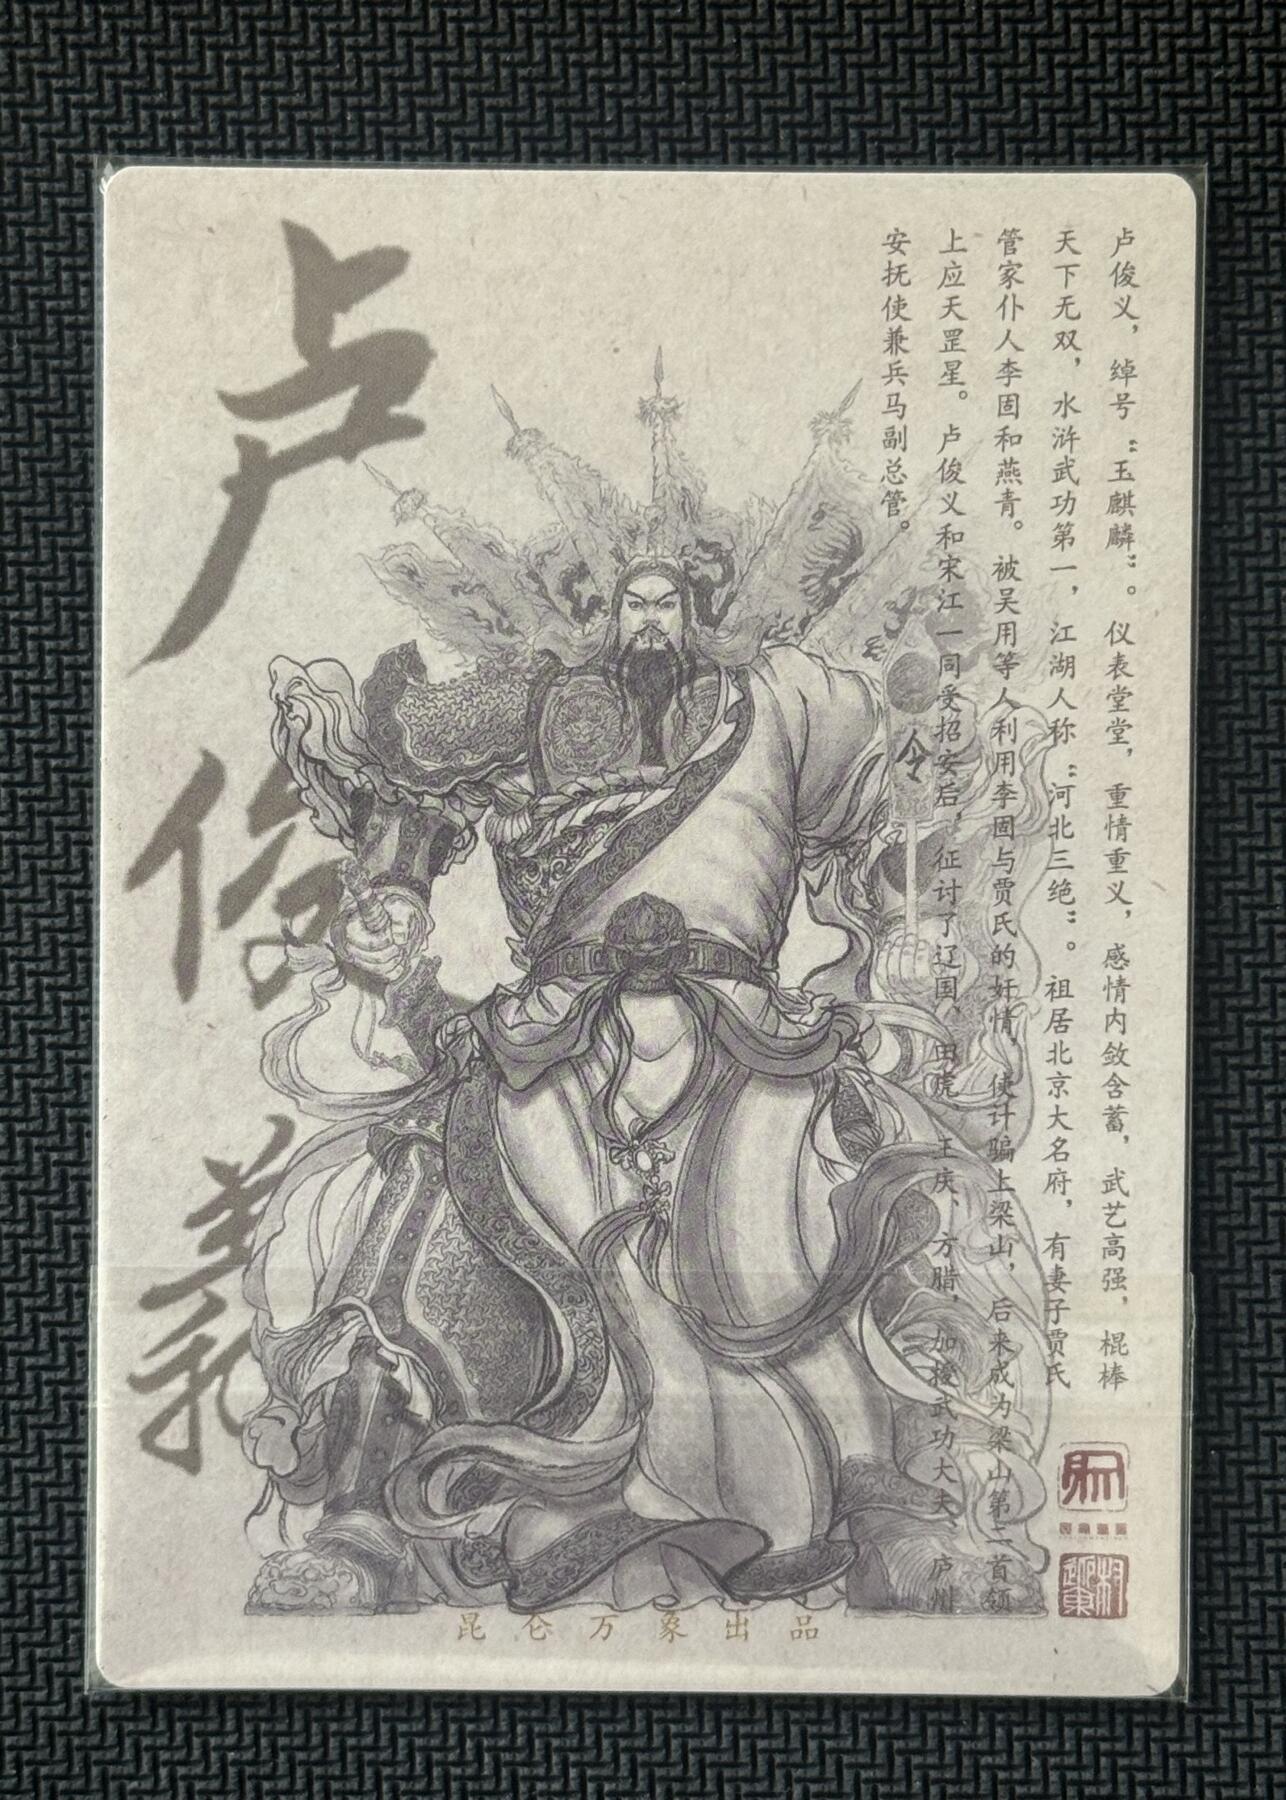 卢俊义，绰号“玉麒麟”。仪表堂堂，重情重义，感情内敛含蓄，武艺高强，棍棒
天下无双，水浒武功第一，江湖人称“河北三绝”。祖居北京大名府，有妻子贾氏
管家仆人李固和燕青。被吴用等人利用李固与贾氏的奸情，使计骗上梁山，后来成为梁山第二首领
上应天罡星。卢俊义和宋江一同受招安后，征讨了辽国、田虎、王庆、方腊，加授武功大夫、庐州
安抚使兼兵马副总管。
卢俊義
令
昆仑万象出品